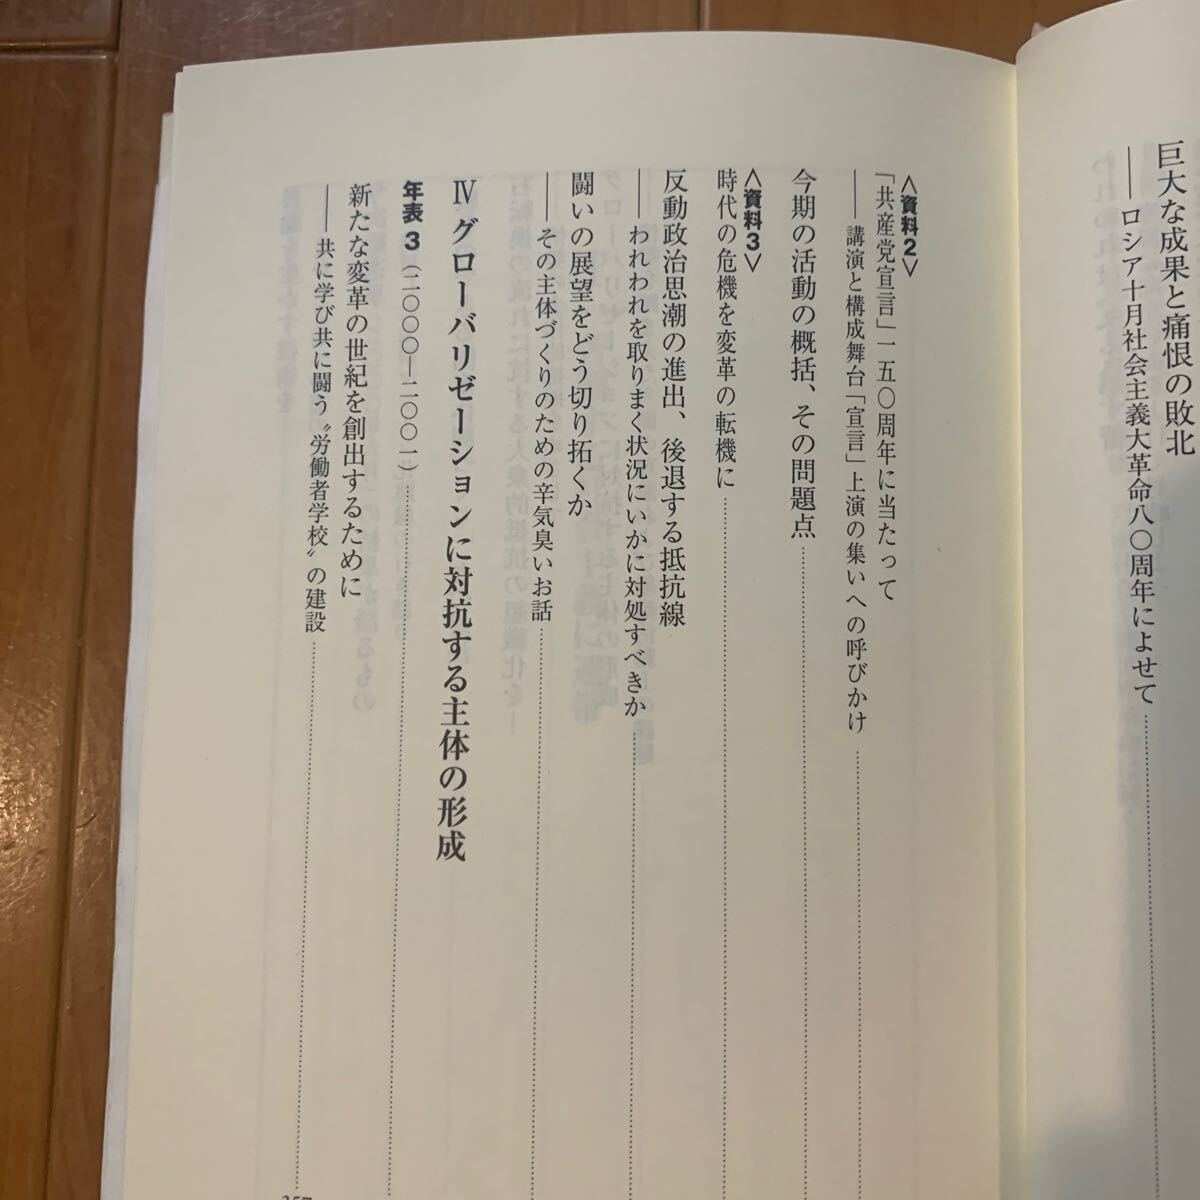 巨大な成果と痛恨の敗北
――ロシア十月社会主義大革命八〇周年によせて
〈資料2〉
「共産党宣言」一五〇周年に当たって
――講演と構成舞台「宣言」上演の集いへの呼びかけ
今期の活動の概括、その問題点
〈資料3〉
時代の危機を変革の転機に
反動政治思潮の進出、後退する抵抗線
――われわれを取りまく状況にいかに対処すべきか
闘いの展望をどう切り拓くか
――その主体づくりのための辛気臭いお話
Ⅳ グローバリゼーションに対抗する主体の形成
年表3(二〇〇〇―二〇〇一)
新たな変革の世紀を創出するために
――共に学び共に闘う〝労働者学校〟の建設